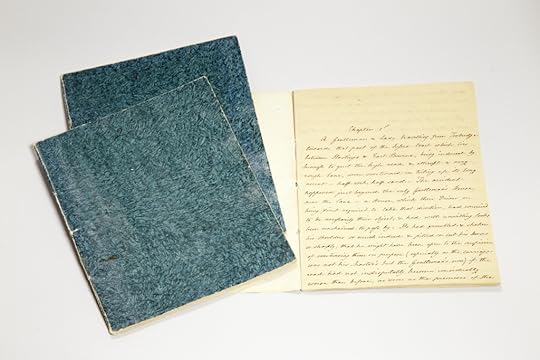 Chapter 1st
A Gentleman & Lady travelling from Tunbridge
towards that part of the Sussex Coast which lies
between Hastings & East Bourne, being induced by
business to quit the high road & attempt a very
rough Lane, were overturned in toiling up its long
ascent - half rock, half sand - The accident
happened just beyond the only Gentleman's House
near the Lane - a House, which their Driver on
being first required to take that direction, had conceived
to be necessarily their object, & had with unwilling looks
been constrained to pass by - He had grumbled & shaken
his shoulders so much indeed & pitied & cut his horses
so sharply, that he might have been open to the suspicion
of overturning them on purpose (especially as the carriage
was not his Master's but the Gentleman's own) if the
road had not indisputably become considerably
worse than before, as soon as the premises of the